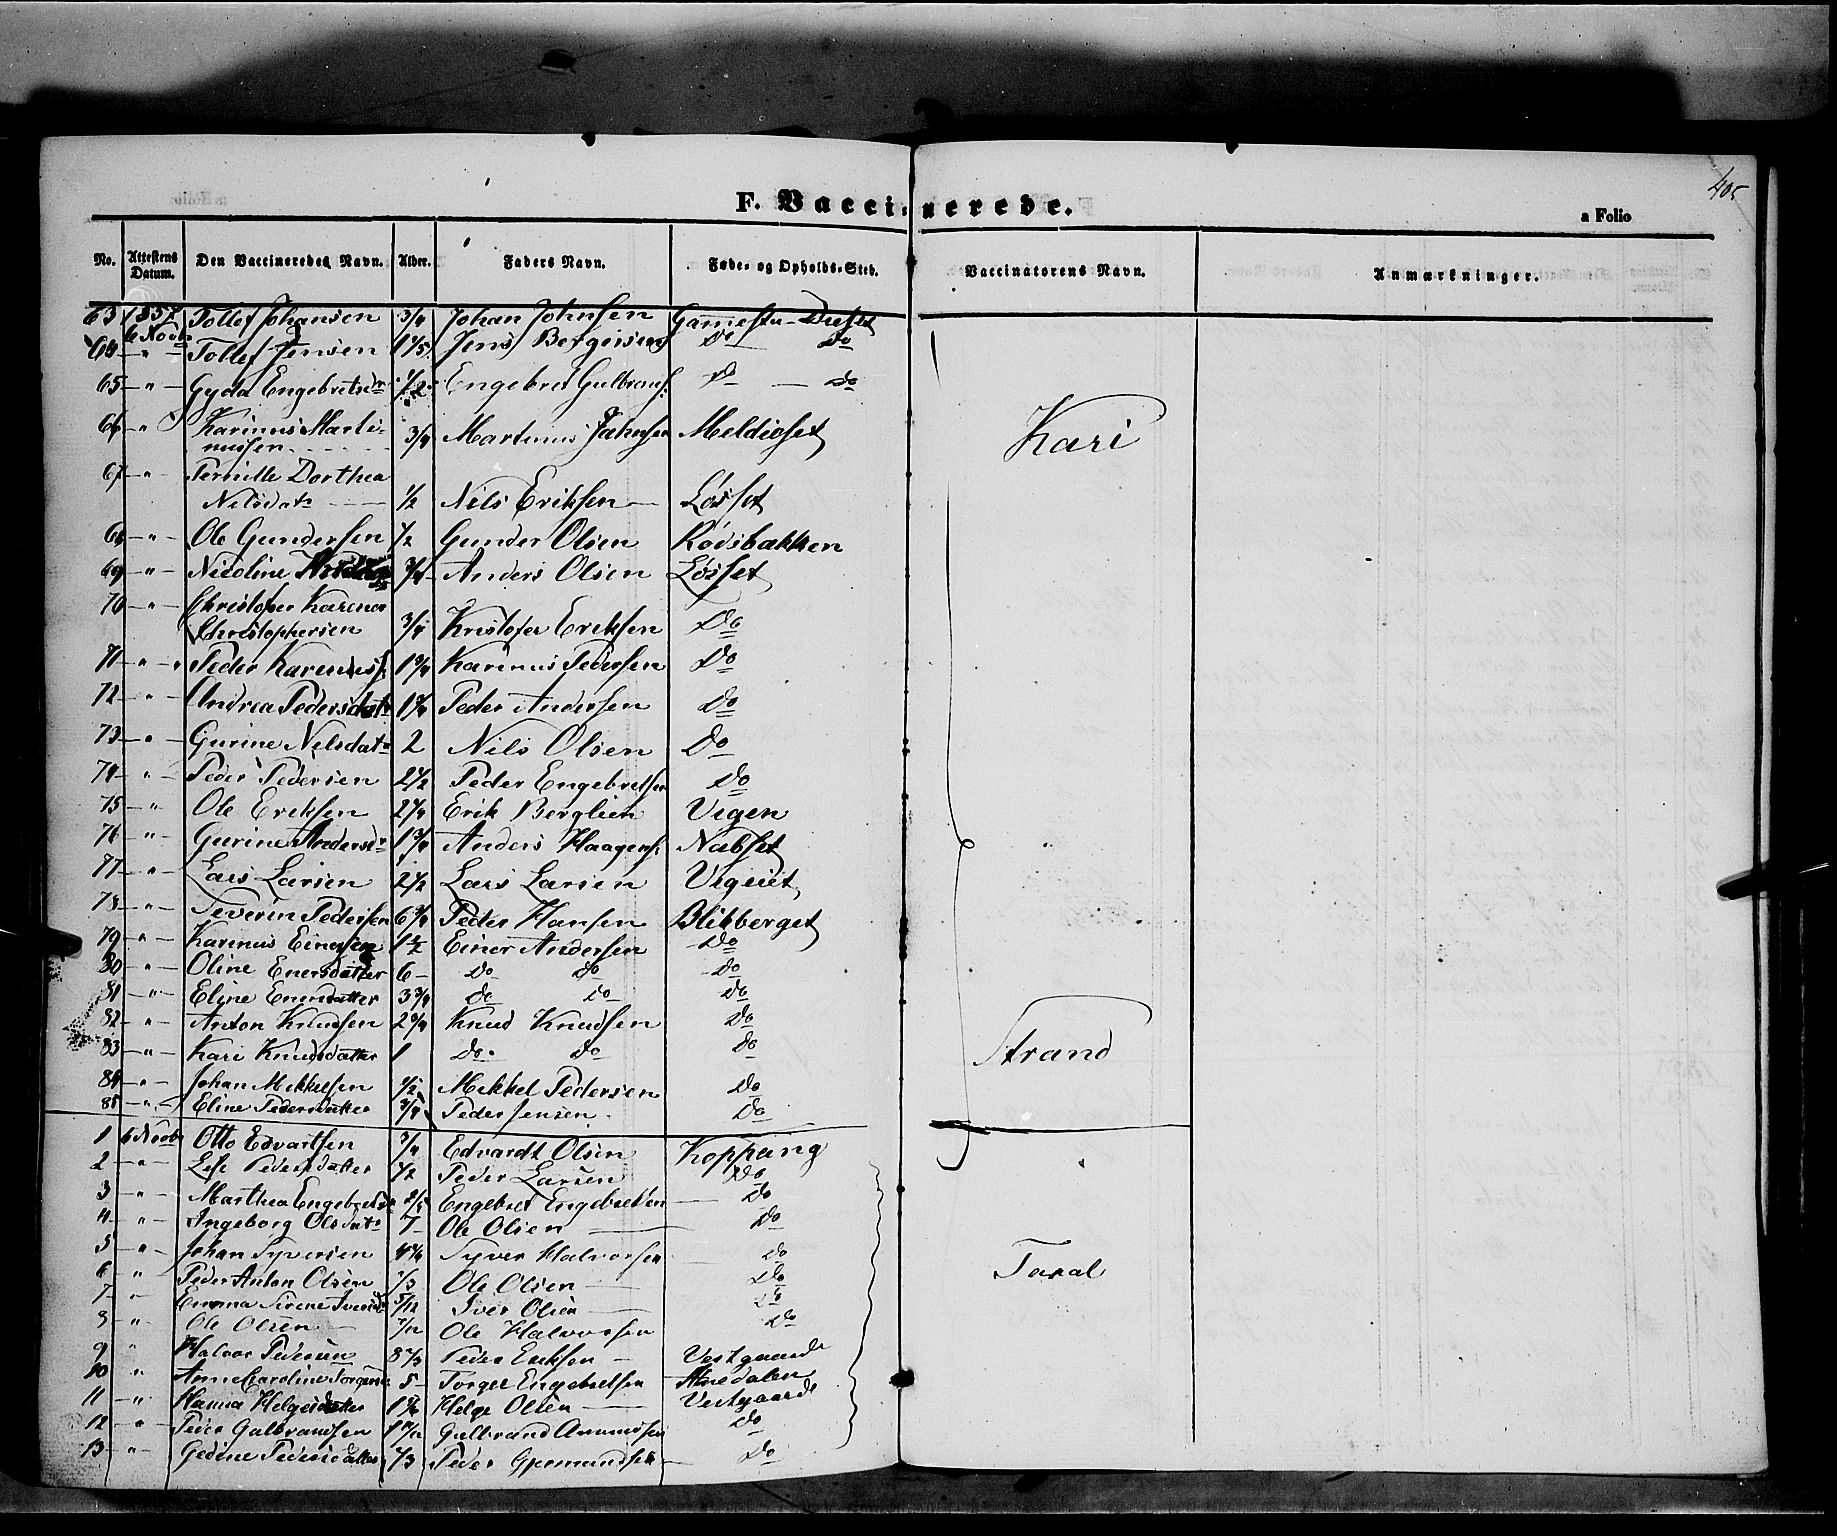 405
F. Vaccinerede.
a Folio
No. Attestens Datum. Den Vaccineredes Navn. Alder. Faders Navn. Føde- og Opholds-Sted. Vaccinatorens Navn. Anmærkninger.
63 1857 Tollef Johansen 3/4 Johan Johnsen
6 Novbr
64 " Tollef Jensen Jens Do Do
65 " Gyda Engebretsdr 1/2 Engebret Gulbrans: Do Do
66 " Karinus Marti-
nussen 3/4 Martinus Meldieset
Kari
67 " Pernille Dorthea
Nilsdatr 1/2 Nils Eriksen Løsset
68 " Ole Gundersen 1/2 Gunder Olsen Rødsbakken
69 " Nicoline Anders Olsen Løsset
70 " Christofer Karenus
Christophersen 3/4 Kristofer Eriksen Do
71 " Peder Karinuss: 1 3/4 Karinus Pedersen Do
72 " Andrea Pedersdatr Peder Andersen Do
73 " Gurine Nilsdatr 2 Nils Olsen Do
74 " Peder Pedersen 2 1/2 Peder Engebretsen Do
75 " Ole Eriksen 2 1/4 Erik Berglien Vigen
76 " Gurine Andersdr 1 3/4 Anders Haagens: Nabset
77 " Lars Larsen 2 1/2 Lars Larsen
78 " Severin Pedersen 6 3/4 Peder Hansen Blikberget
79 " Karinus Einersen 1 1/2 Einer Andersen Do
80 " Oline Enersdatter 6 Do Do Do
81 " Eline Enersdatter 3 3/4 Do Do Do
82 " Anton Knudsen 2 3/4 Knud Knudsen Do
83 " Kari Knudsdatter 1 Do Do Do
Strand
84 " Johan Mikkelsen 1/2 Mikkel Pedersen Do
85 " Eline Pedersdatter 3/4 Peder Jensen Do
1 6 Novbr Otto Edvartsen 3/4 Edvardt Olsen Koppang
2 " Lise Pedersdatter 1/2 Peder Larsen Do
3 " Marthea Engebretsdr Engebret Engebretsen Do
4 " Ingeborg Olsdatr 7 Ole Olsen Do
5 " Johan Syversen Syver Halvorsen Do
6 " Peder Anton Olsen Ole Olsen Do
7 " Emma Sirene Iversdr 5/12 Iver Olsen Do
8 " Ole Olsen 7/12 Ole Halvorsen Do
9 " Halvor Pedersen Peder Eriksen Vestgaarde
10 " Anne Caroline 5 Torger Engebretsen Atnedalen
11 " Hanna Helgesdatter Helge Olsen Vestgaarde
12 " Peder Gulbrandsen Gulbrand Amundsen Do
13 " Gedine Pedersdatter Peder Do